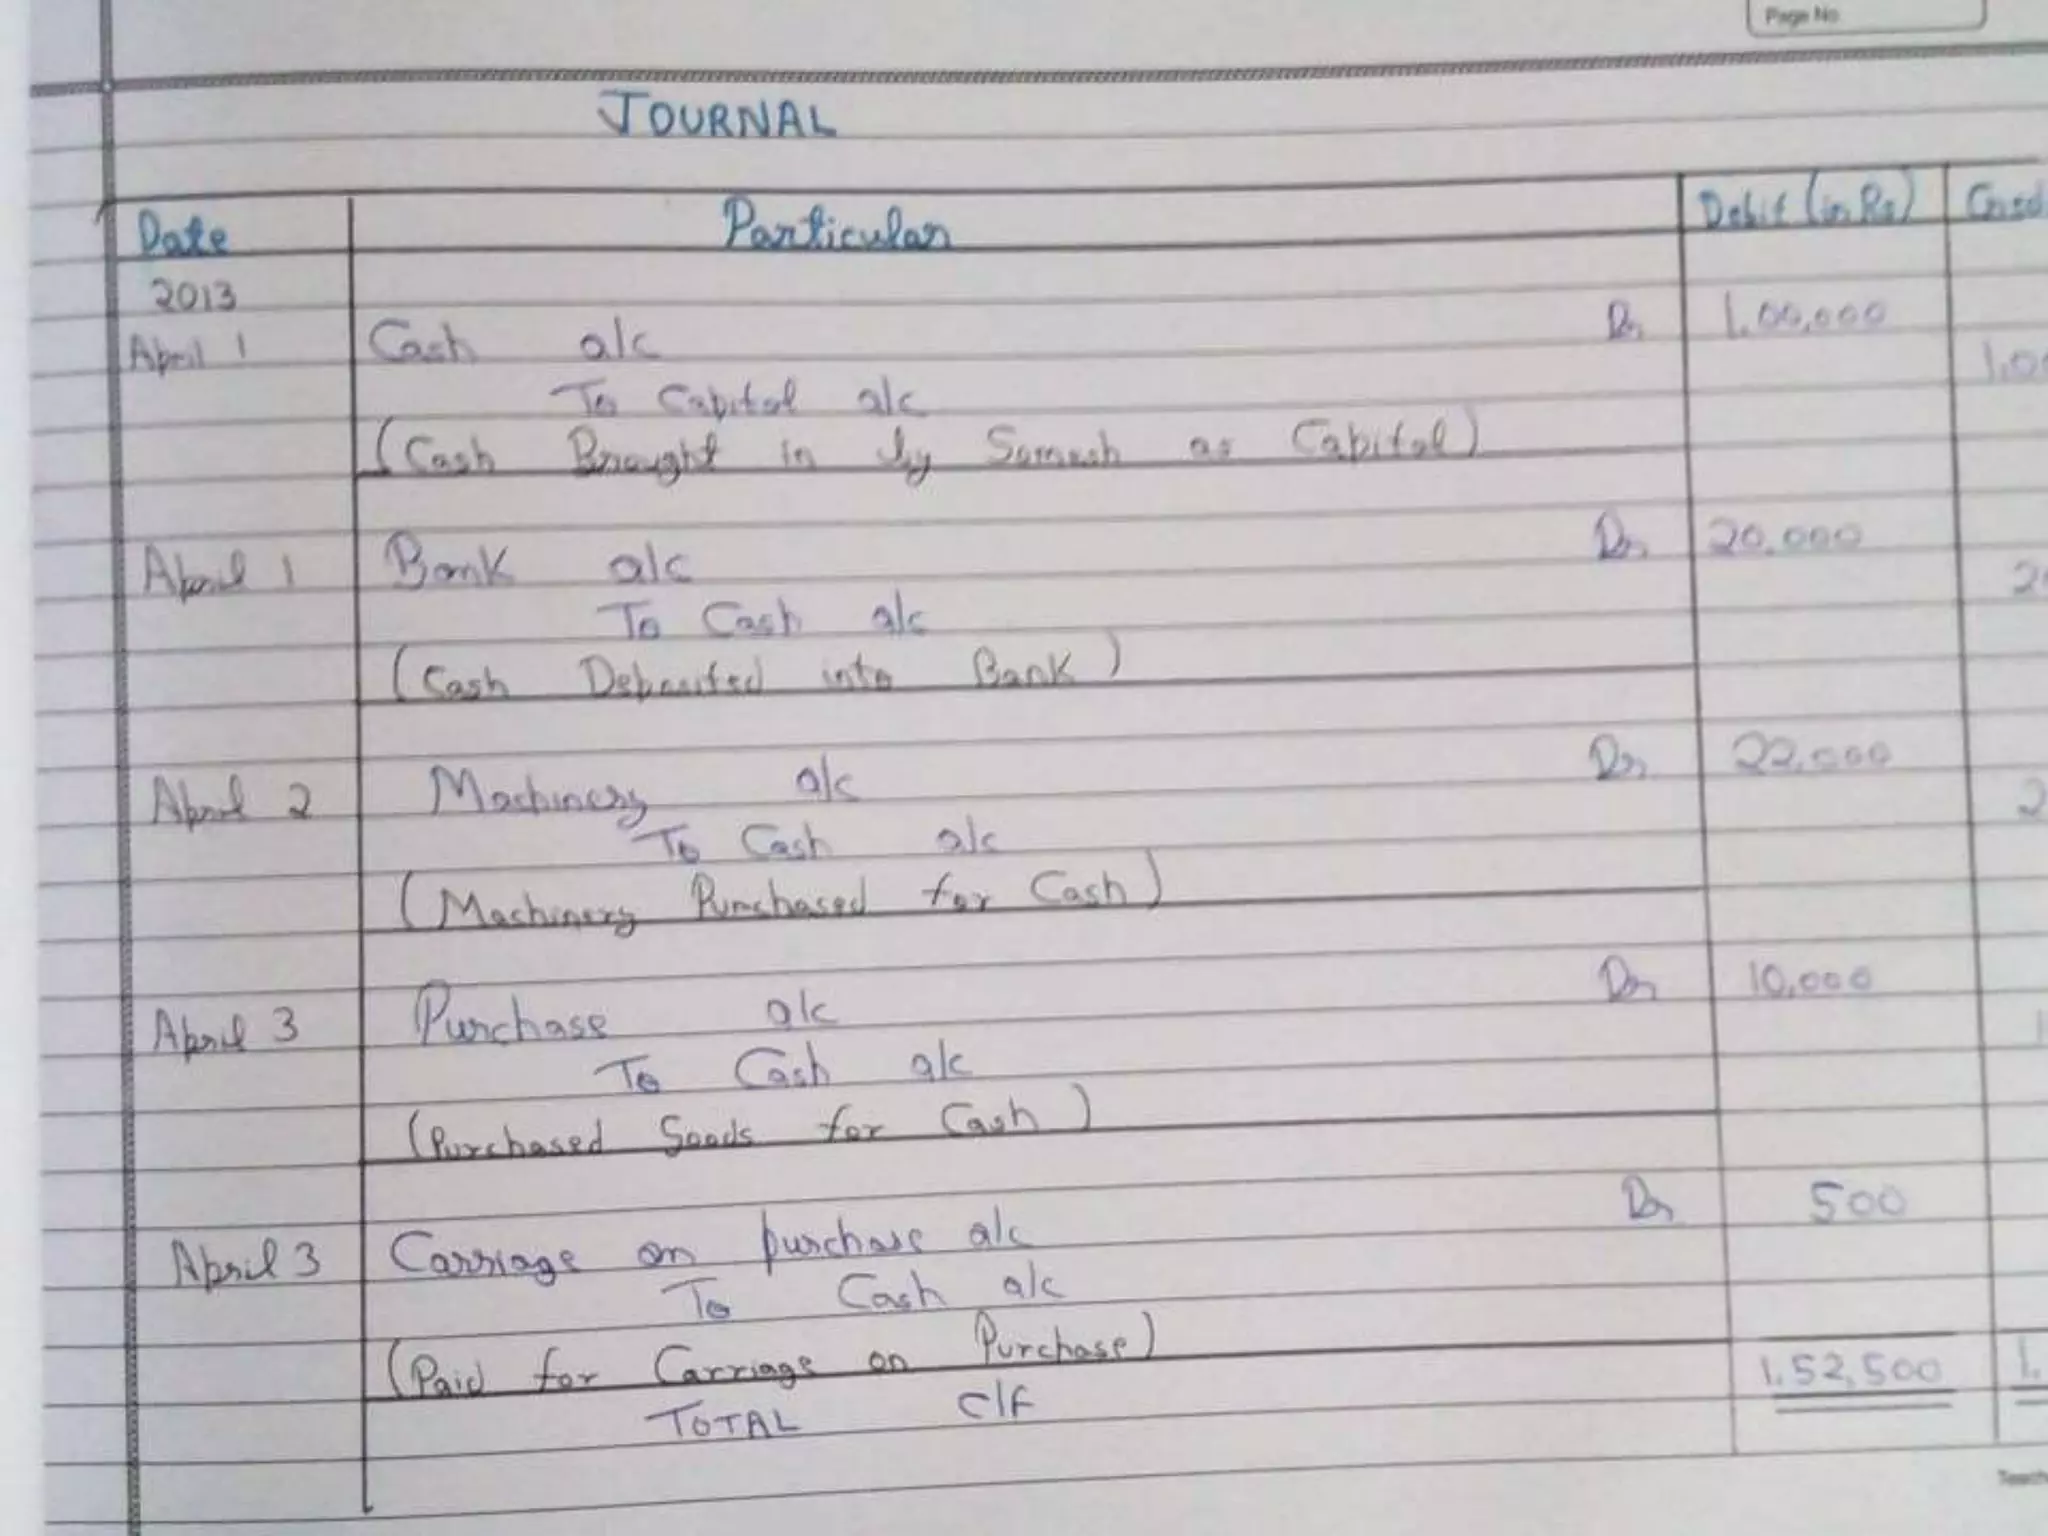 Page No
JOURNAL
Date Particular Debit (in Rs) Cred
2013
April 1 Cash a/c Dr 1,00,000
To Capital a/c 1,00
(Cash Brought in by Somesh as Capital)
April 1 Bank a/c Dr 20,000
To Cash a/c 20
(Cash Deposited into Bank)
April 2 Machinery a/c Dr 22,000
To Cash a/c 2
(Machinery Purchased for Cash)
April 3 Purchase a/c Dr 10,000
To Cash a/c 1
(Purchased Goods for Cash)
April 3 Carriage on purchase a/c Dr 500
To Cash a/c
(Paid for Carriage on Purchase)
TOTAL C/F 1,52,500 1,
Teach